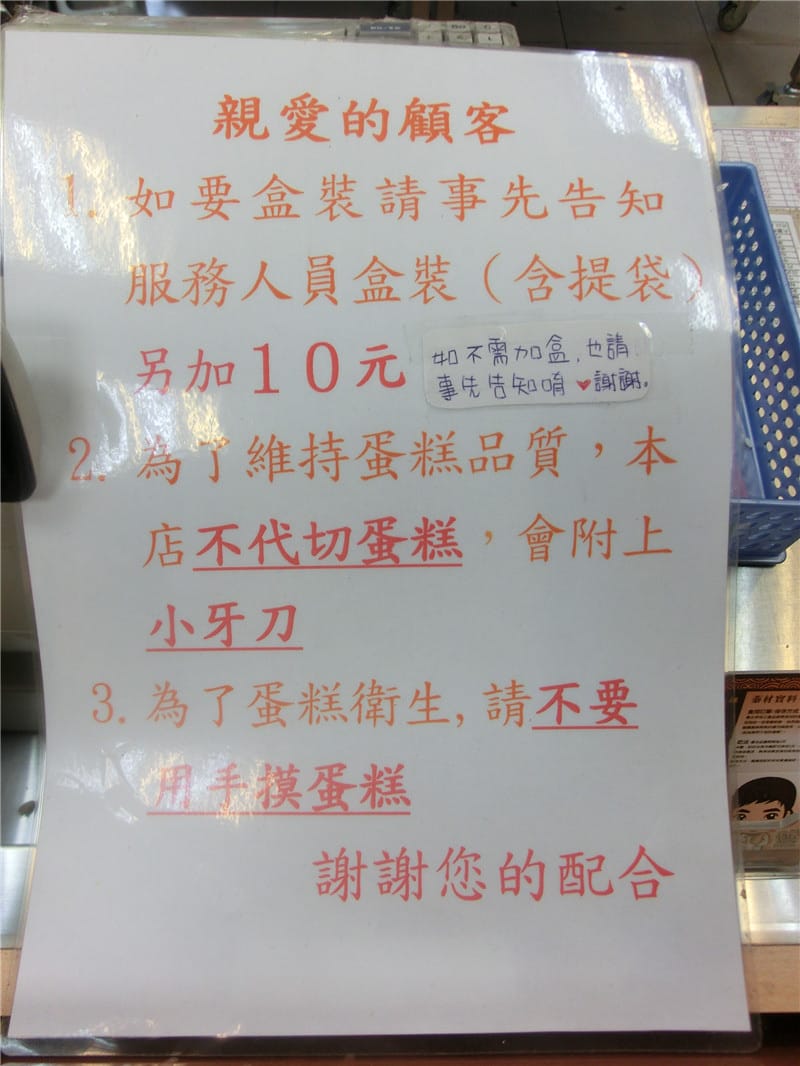 親愛的顧客
1. 如要盒裝請事先告知
服務人員盒裝（含提袋）
另加10元
如不需加盒,也請
事先告知唷❤謝謝。
2. 為了維持蛋糕品質，本
店不代切蛋糕，會附上
小牙刀
3. 為了蛋糕衛生,請不要
用手摸蛋糕
謝謝您的配合